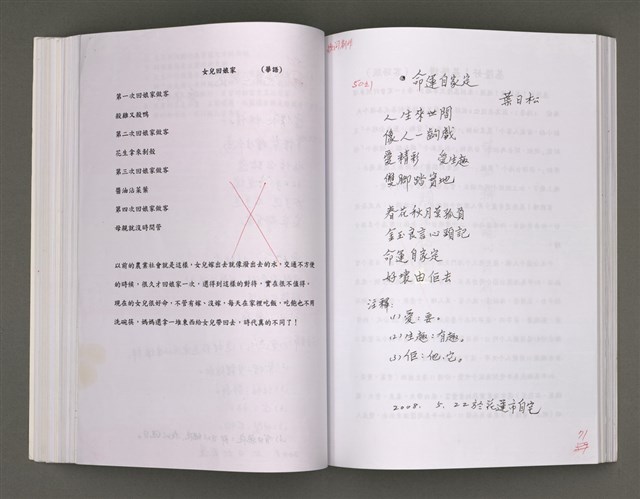 女兒回娘家 (華語)
第一次回娘家做客
殺雞又殺鴨
第二次回娘家做客
花生拿來剝殼
第三次回娘家做客
醬油沾菜葉
第四次回娘家做客
母親說沒時間管
以前的農業社會就是這樣,女兒嫁出去就像潑出去的水,交通不方便
的時候,很久才回娘家一次,遭得到這樣的對待,實在很不值得。
現在的女兒很好命,不管有嫁、沒嫁,每天在家裡吃飯,吃飽也不用
洗碗筷,媽媽還拿一堆東西給女兒帶回去,時代真的不同了!
5021
命運自家定
葉日松
人生來世間
像人一齣戲
愛精彩 愛生趣
雙腳踏實地
春花秋月莫孤負
金玉良言心頭記
命運自家定
好壞由佢去
注釋:
(1)愛:要。
(2)生趣:有趣。
(3)佢:他、它。
2008. 5. 22於花蓮市自宅
71